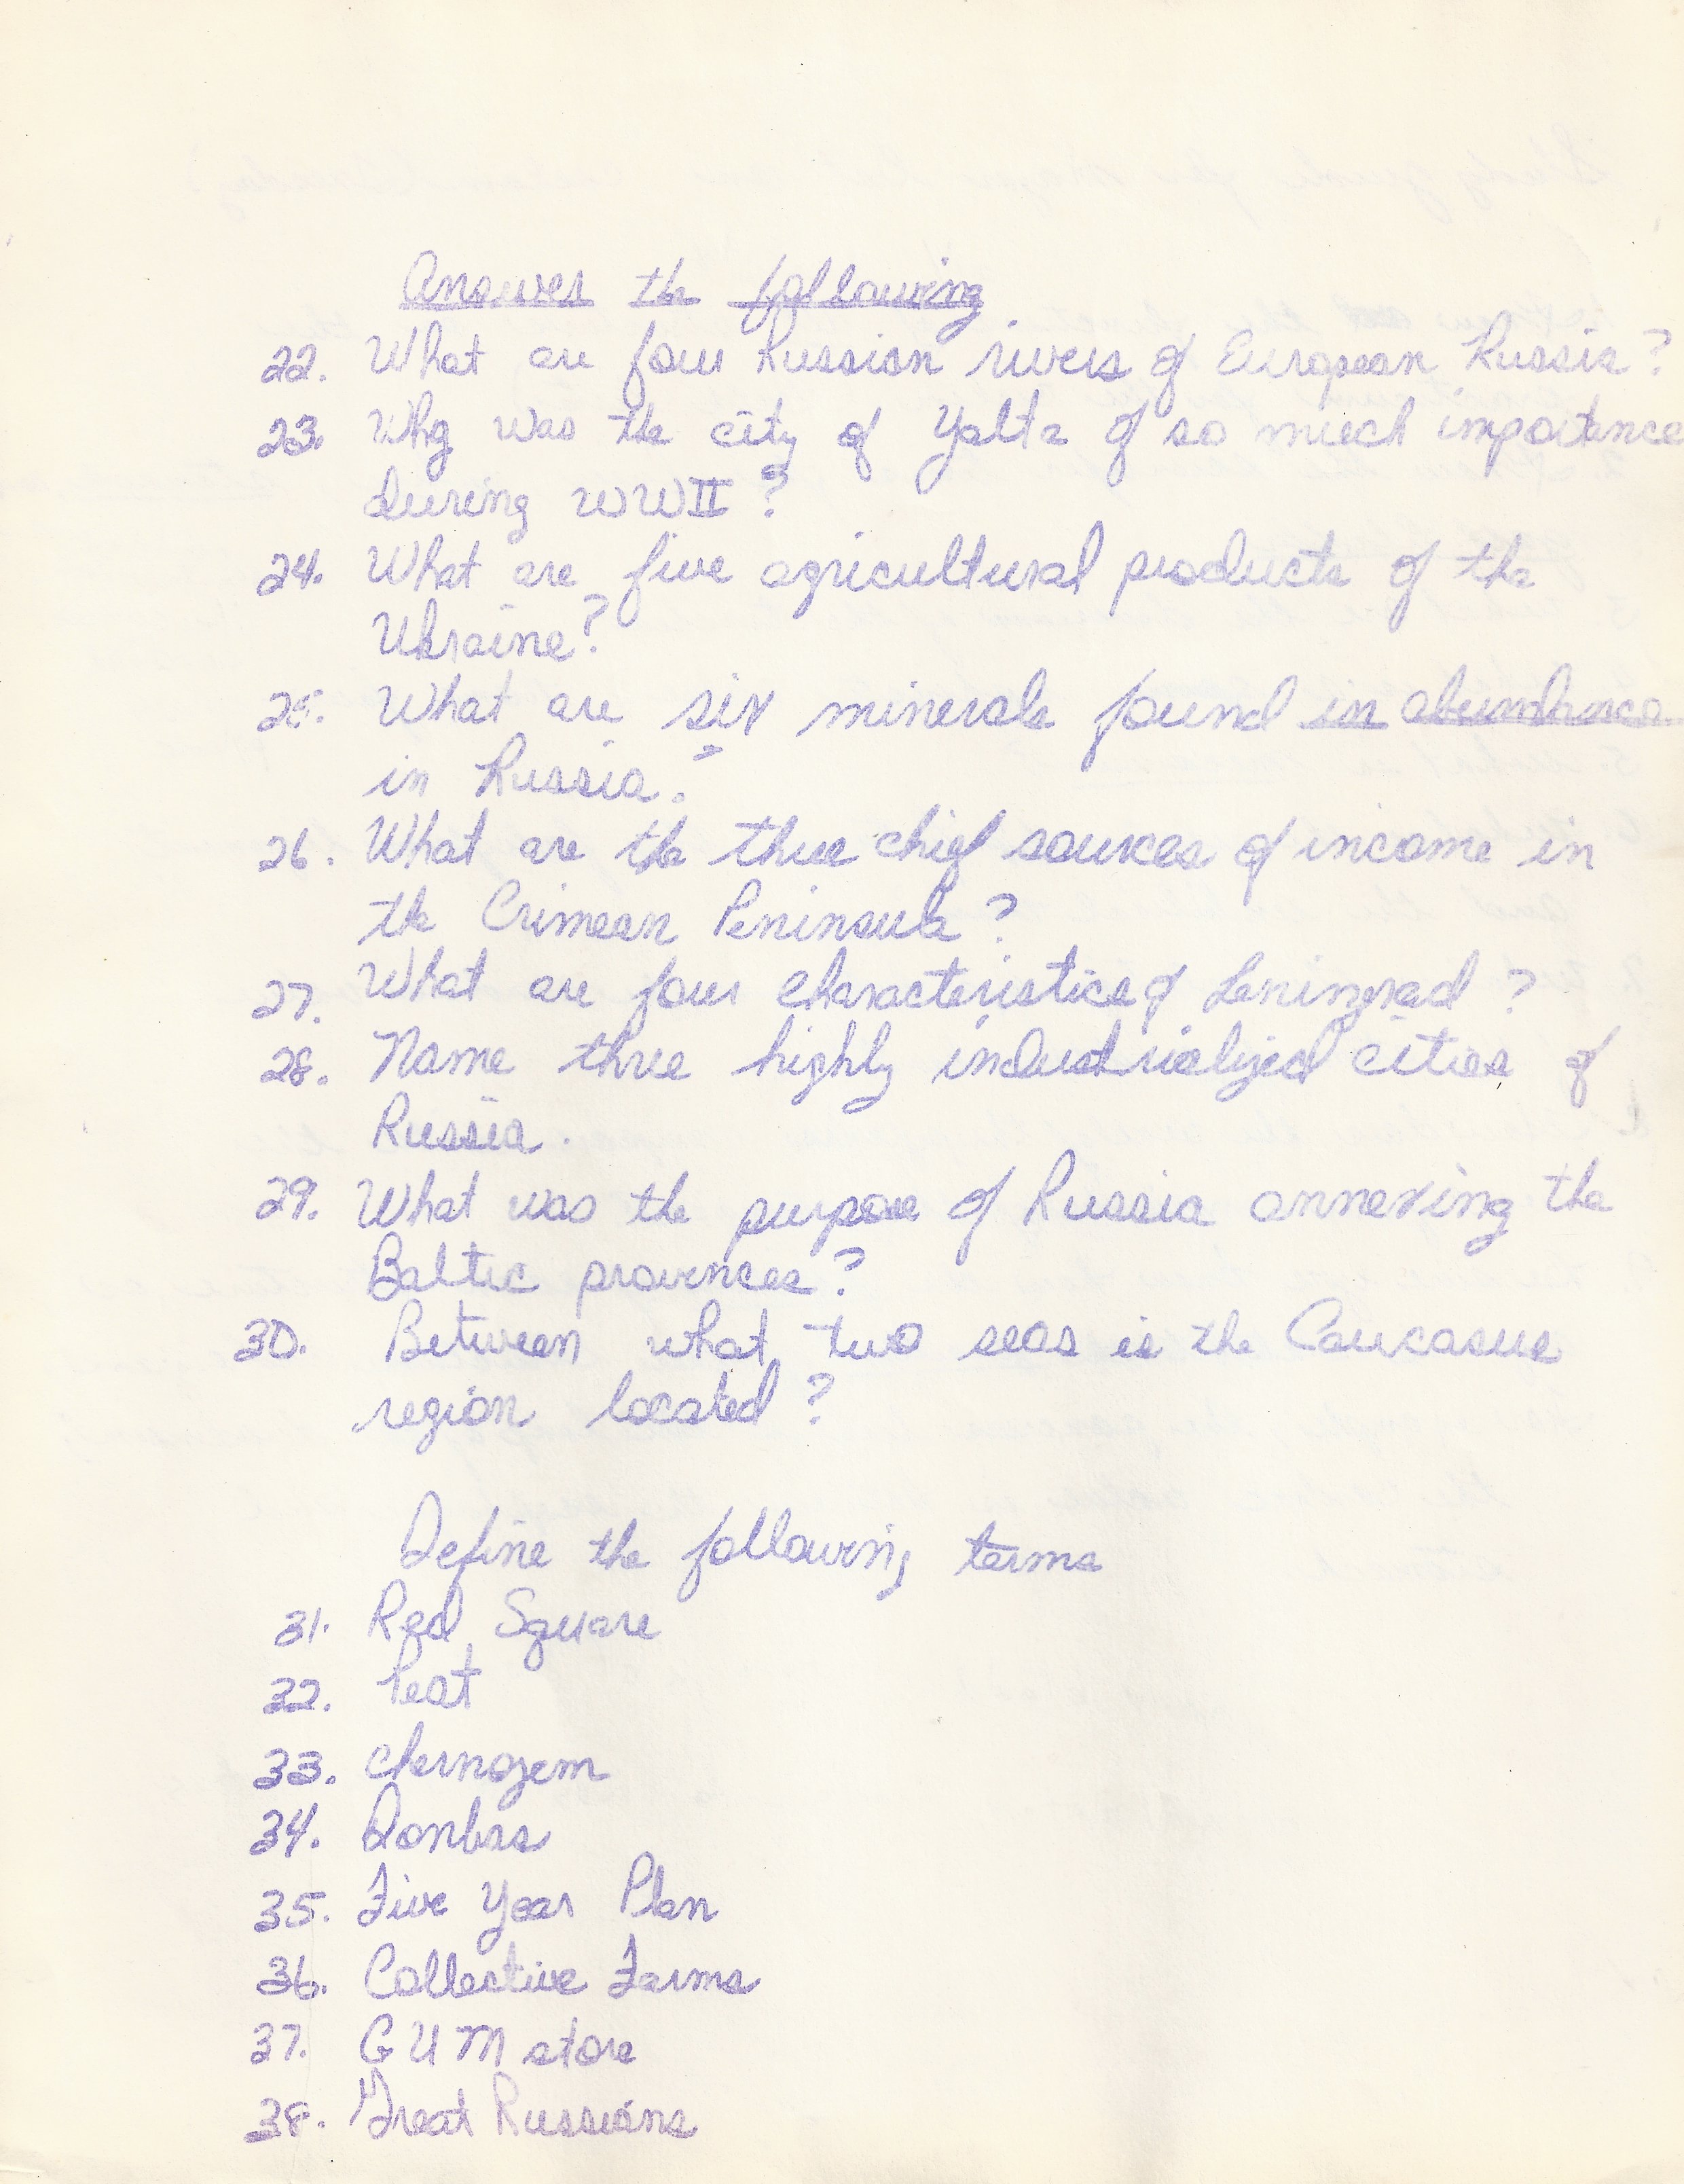 Answer the following
22. What are four Russian rivers of European Russia?
23. Why was the city of Yalta of so much importance
during WWII?
24. What are five agricultural products of the
Ukraine?
25. What are six minerals found in abundance
in Russia?
26. What are the three chief sources of income in
the Crimean Peninsula?
27. What are four characteristics of Leningrad?
28. Name three highly industrialized cities of
Russia.
29. What was the purpose of Russia annexing the
Baltic provinces?
30. Between what two seas is the Caucasus
region located?
Define the following terms
31. Red Square
32. Peat
33. Chernozem
34. Donbas
35. Five Year Plan
36. Collective Farms
37. GUM store
38. Great Russians